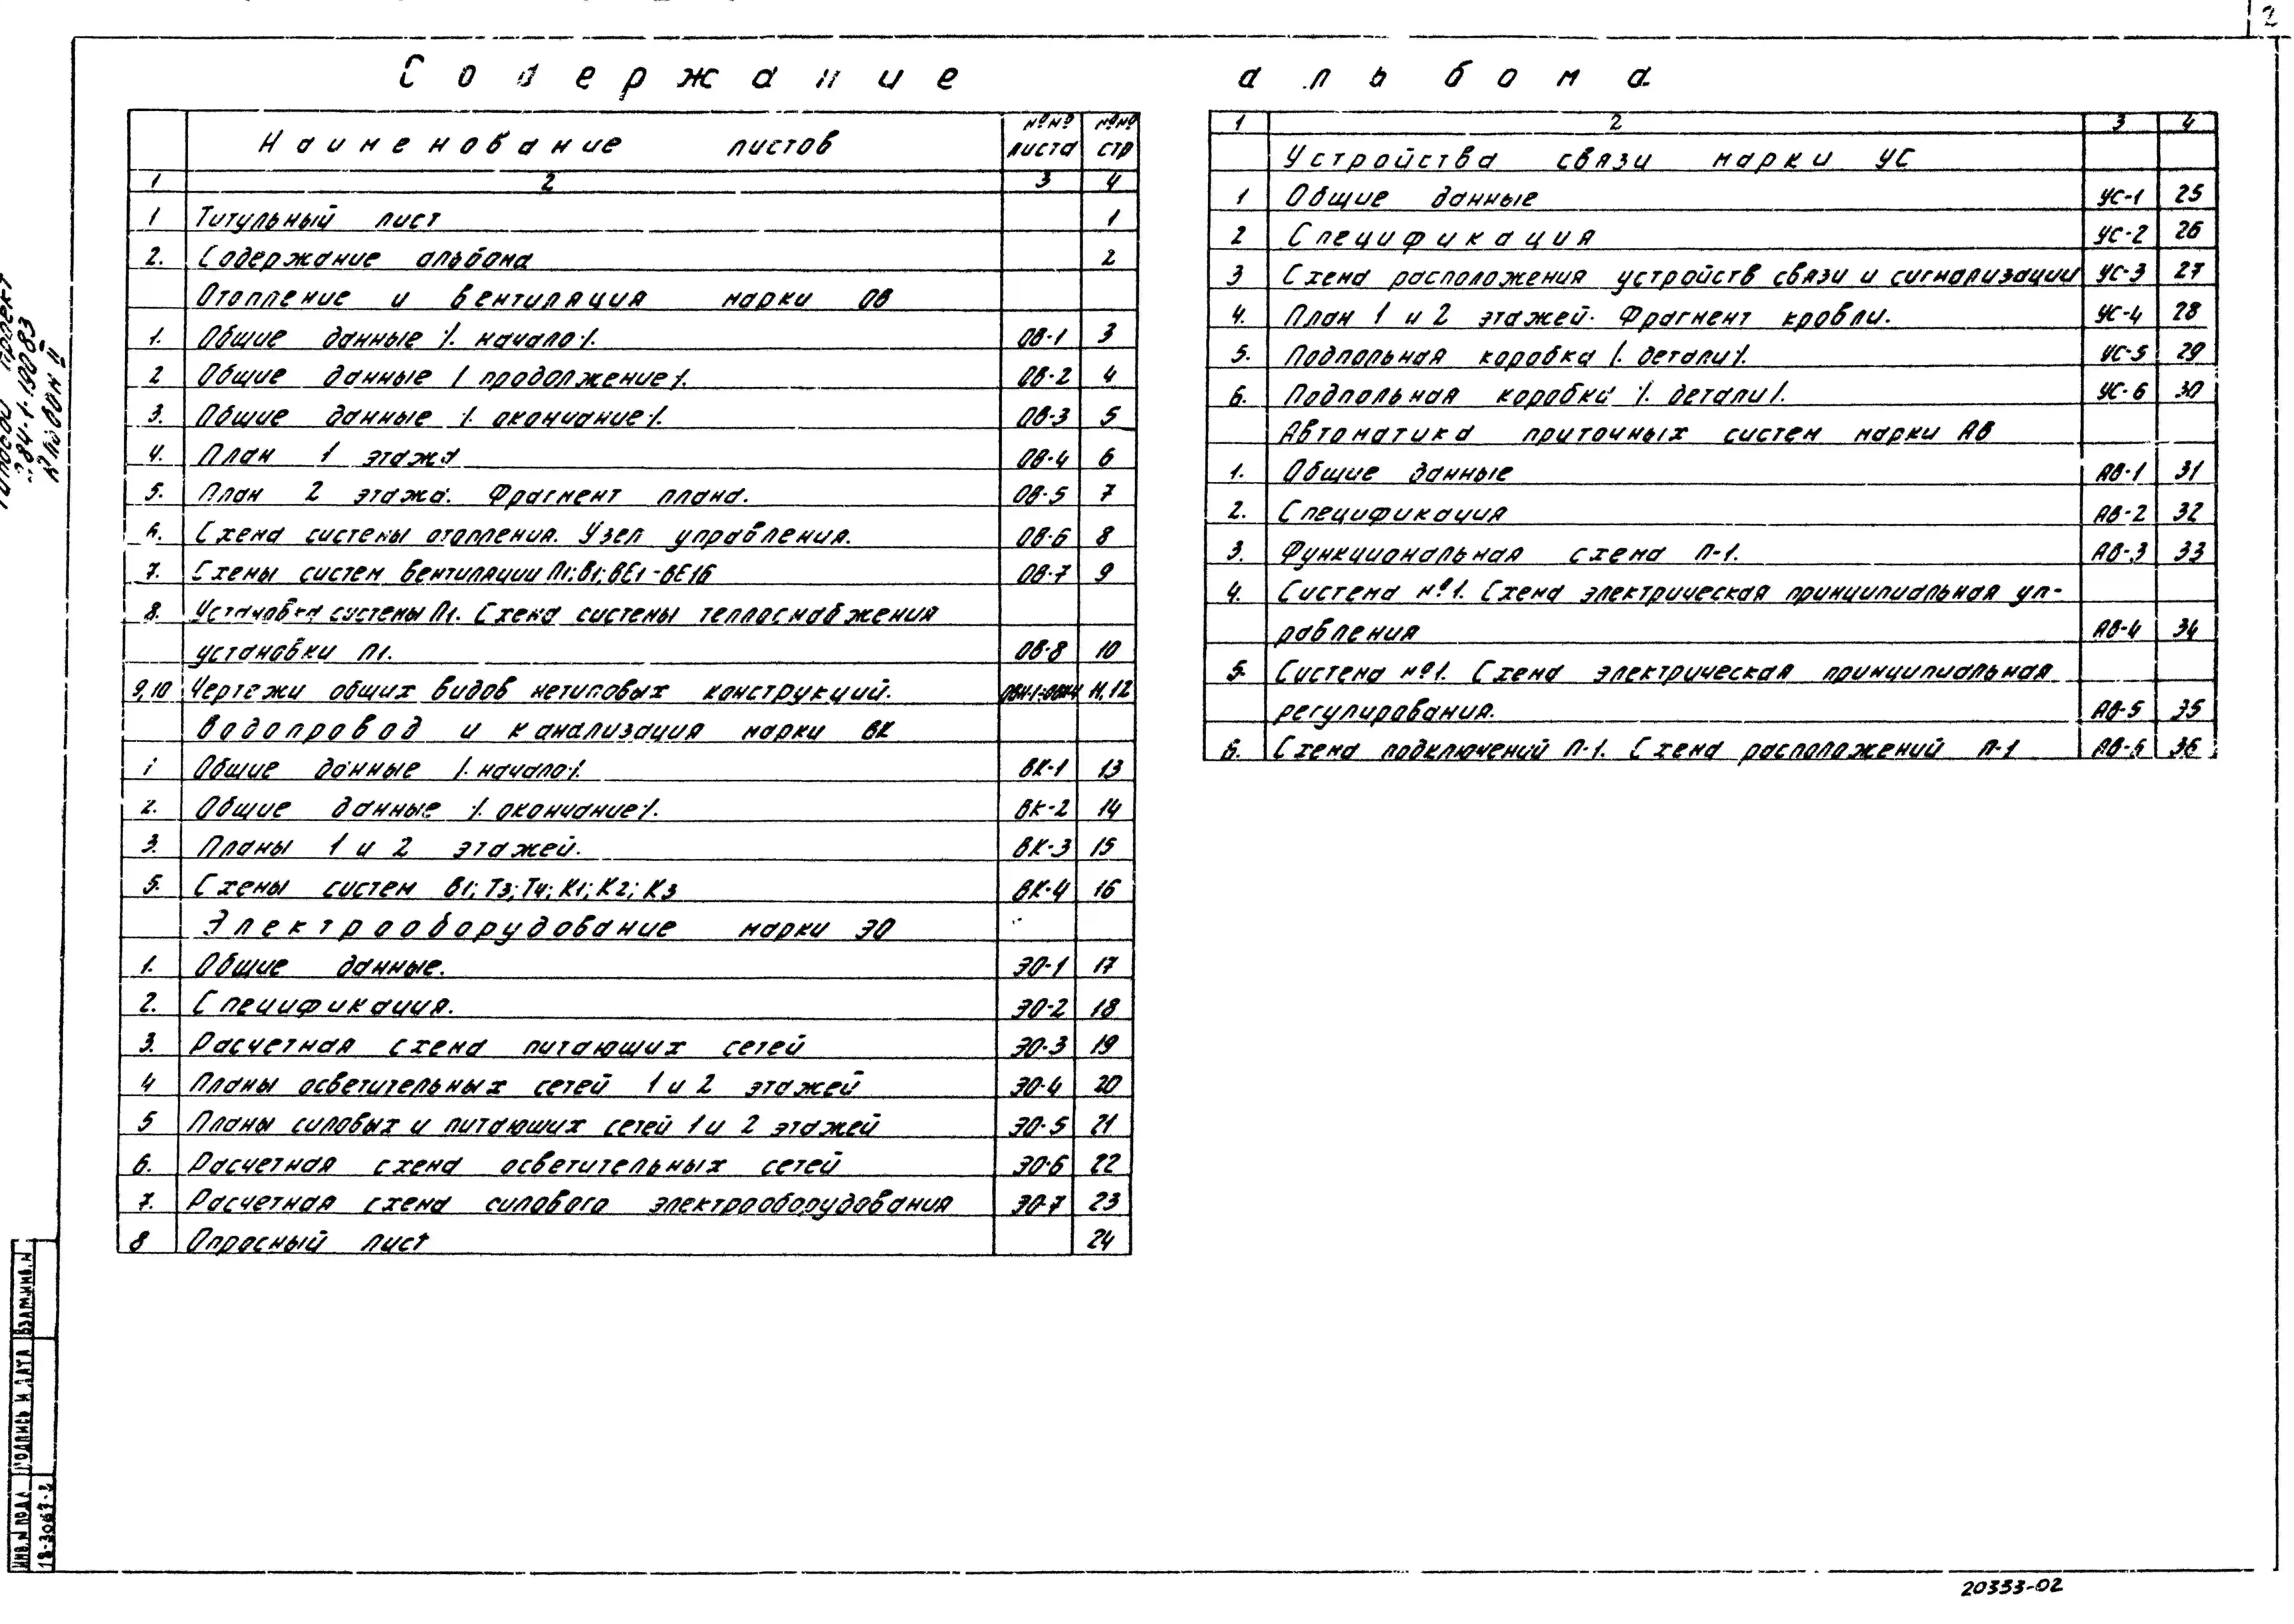 2
Содержание альбома
Наименование листов №№ листа №№ стр
1 2 3 4
1 Титульный лист 1
2. Содержание альбома 2
Отопление и вентиляция марки ОВ
1. Общие данные /. начало/. ОВ-1 3
2 Общие данные / продолжение/. ОВ-2 4
3. Общие данные /. окончание/. ОВ-3 5
4. План 1 этажа ОВ-4 6
5. План 2 этажа. Фрагмент плана. ОВ-5 7
6. Схема системы отопления. Узел управления. ОВ-6 8
7. Схемы систем вентиляции П1; В1; ВЕ1-ВЕ16 ОВ-7 9
8. Установка системы П1. Схема системы теплоснабжения
установки П1. ОВ-8 10
9,10 Чертежи общих видов нетиповых конструкций. 11,12
Водопровод и канализация марки ВК
1 Общие данные /. начало/. ВК-1 13
2. Общие данные /. окончание/. ВК-2 14
3. Планы 1 и 2 этажей. ВК-3 15
5. Схемы систем В1; Т3; Т4; К1; К2; К3 ВК-4 16
Электрооборудование марки ЭО
1. Общие данные. ЭО-1 17
2. Спецификация. ЭО-2 18
3. Расчетная схема питающих сетей ЭО-3 19
4 Планы осветительных сетей 1 и 2 этажей ЭО-4 20
5 Планы силовых и питающих сетей 1 и 2 этажей ЭО-5 21
6. Расчетная схема осветительных сетей ЭО-6 22
7. Расчетная схема силового электрооборудования ЭО-7 23
8 Опросный лист 24
1 2 3 4
Устройства связи марки УС
1 Общие данные УС-1 25
2 Спецификация УС-2 26
3 Схема расположения устройств связи и сигнализации УС-3 27
4. План 1 и 2 этажей. Фрагмент кровли. УС-4 28
5. Подпольная коробка /. детали/. УС-5 29
6. Подпольная коробка /. детали/. УС-6 30
Автоматика приточных систем марки АВ
1. Общие данные АВ-1 31
2. Спецификация АВ-2 32
3. Функциональная схема П-1. АВ-3 33
4. Система №1. Схема электрическая принципиальная уп-
равления АВ-4 34
5. Система №1. Схема электрическая принципиальная
регулирования. АВ-5 35
6. Схема подключений П-1. Схема расположений П-1 АВ-6 36
проект
284-1-190.83
Альбом II
ВЗАМ.ИНВ.N
ПОДПИСЬ И ДАТА
ИНВ.N ПОДЛ
18-3067-2
20353-02